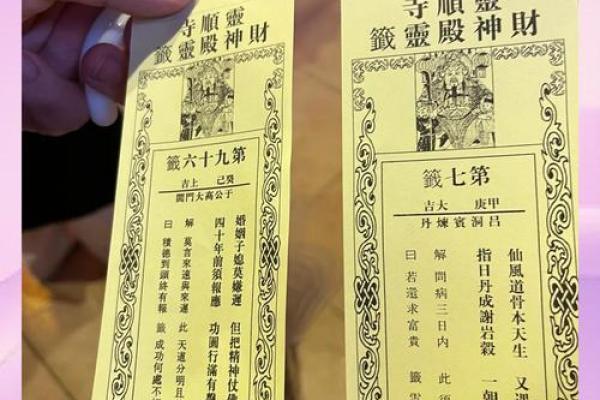 靈順寺
財神殿靈籤
第九十六籤
癸己 上吉
于公高大門開
婚姻子媳莫嫌遲 但把精神仗佛
四十年前須報應 功圓行滿有
解 莫言來速與來遲 此 天道分明且
曰 積德到頭終有報 籤 成功何處不
靈順寺
財神殿靈籤
第七籤
甲庚 大吉
呂洞賓煉丹
仙風道骨本天生 又遇
指日丹成謝岩 一朝
解 問病三日內 此 須
曰 若還求富貴 籤 雲